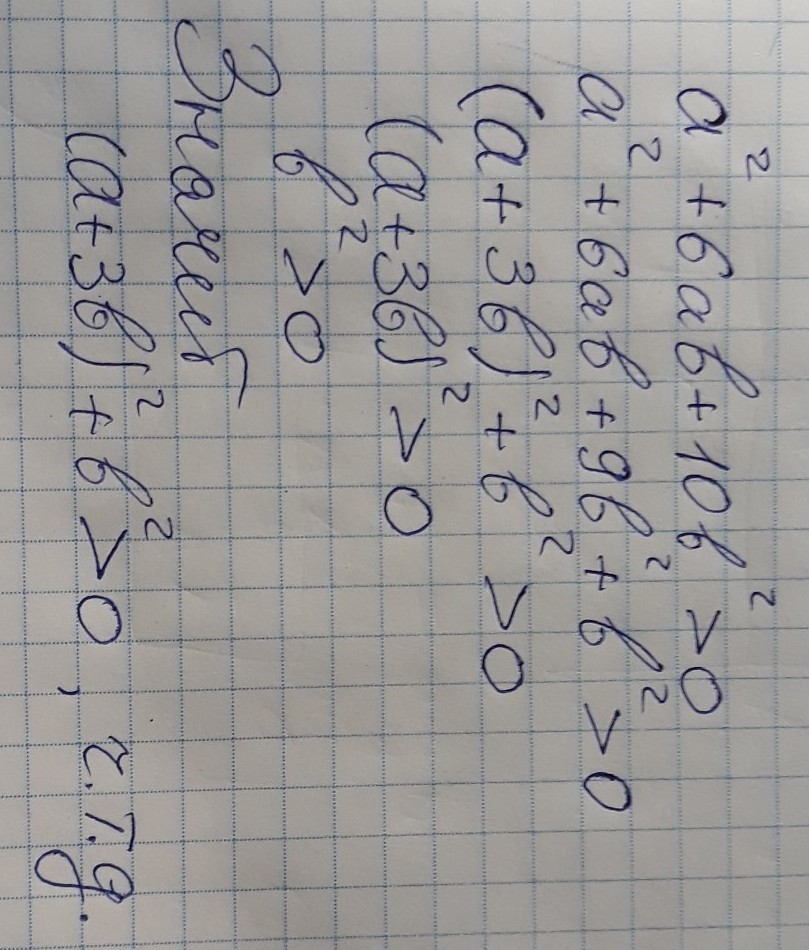 a² + 6ab + 10b² > 0
a² + 6ab + 9b² + b² > 0
(a + 3b)² + b² > 0
(a + 3b)² > 0
b² > 0
Значит
(a + 3b)² + b² > 0, ч.т.д.